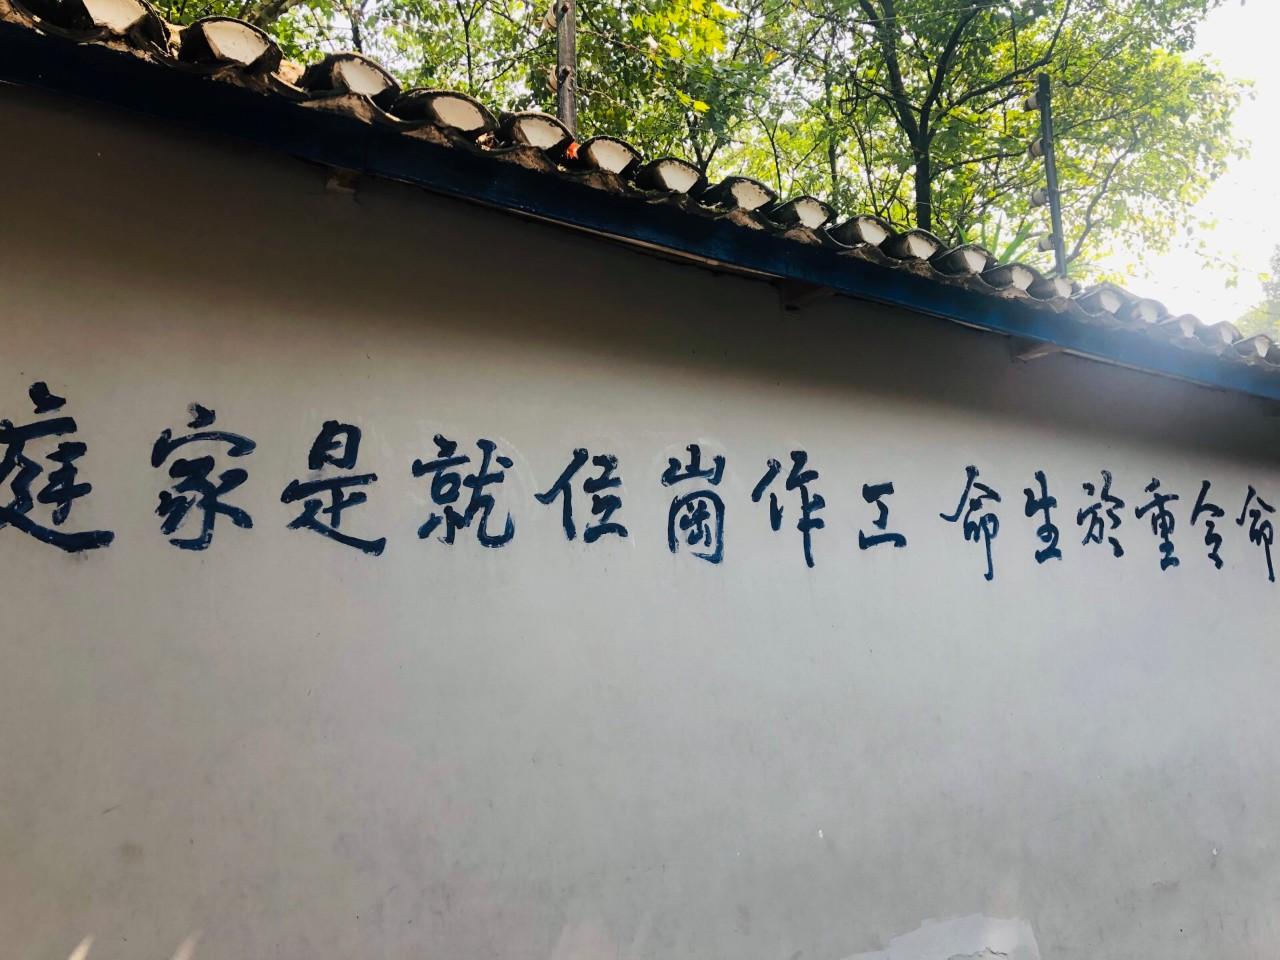 命令重於生命 工作崗位就是家庭